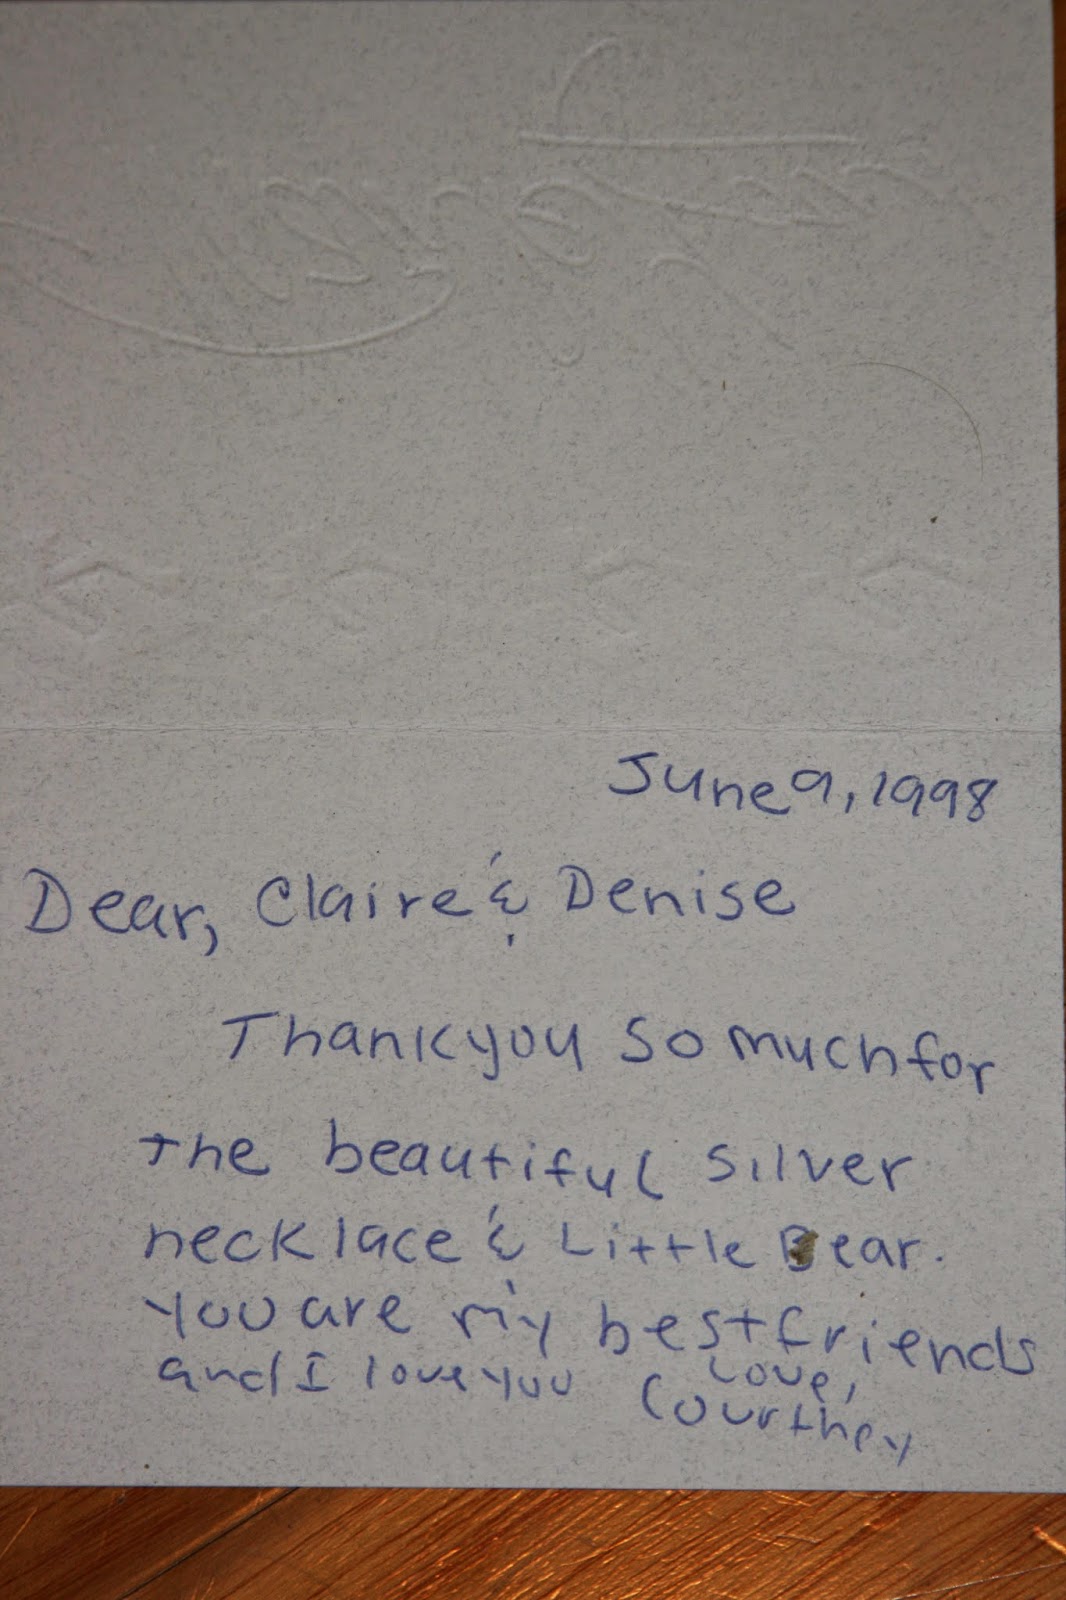 June 9, 1998
Dear, Claire & Denise
Thank you so much for
the beautiful silver
necklace & Little Bear.
You are my best friends
and I love you Love,
Courtney